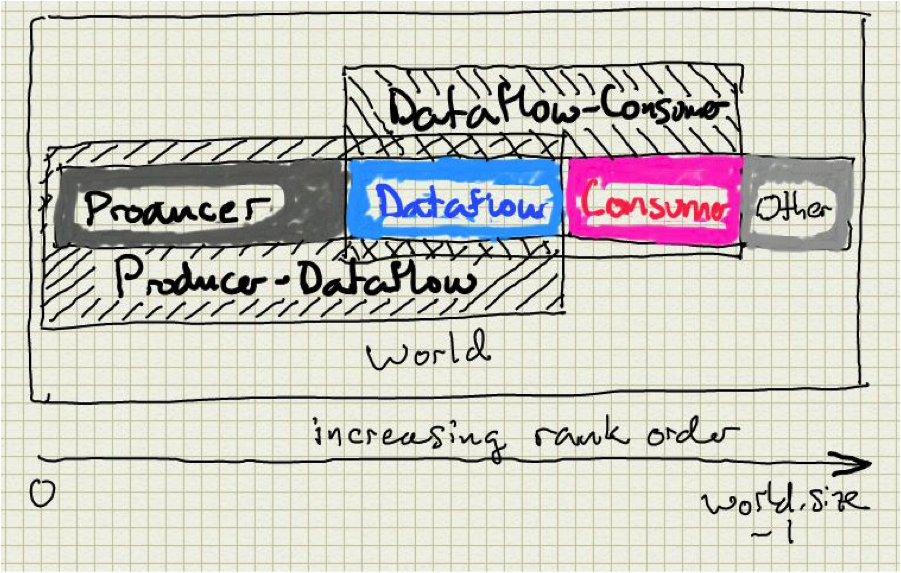 Dataflow-Consumer
Producer Dataflow Consumer Other
Producer-Dataflow
World
increasing rank order
0
world.size
-1